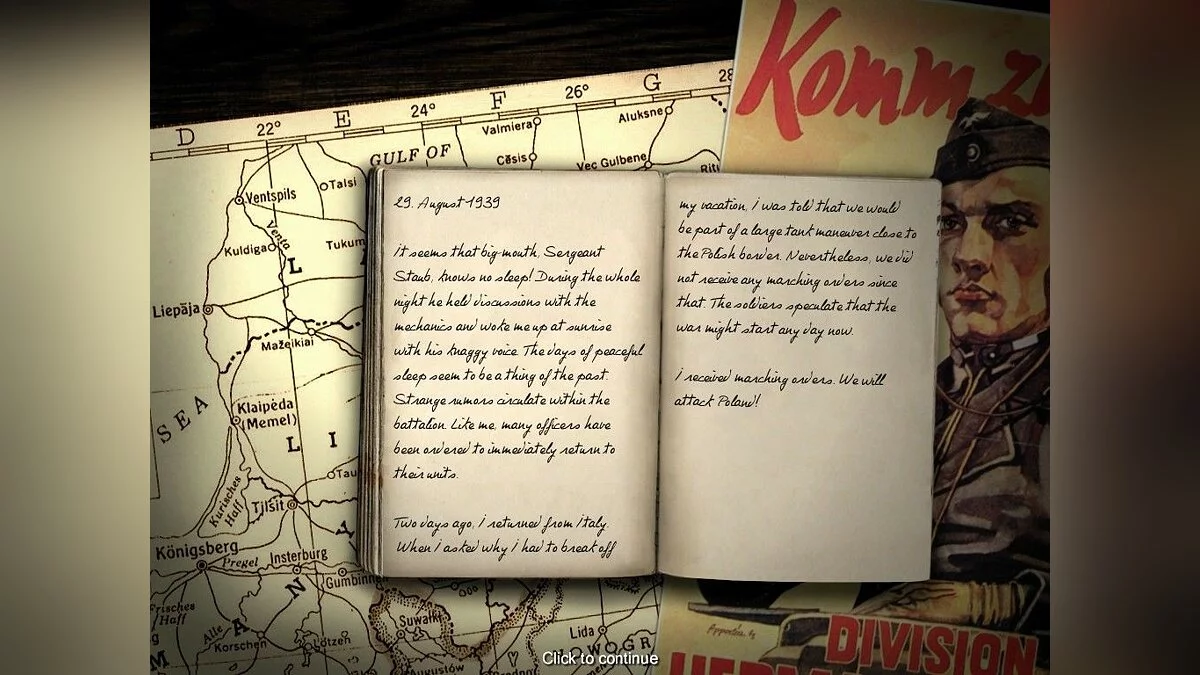 Komm z
D
22°
E
24°
F
26°
G
28
Valmiera
Aluksne
GULF OF
Cēsis
Vec Gulbene
Riti
Ventspils
Talsi
Venta
Kuldiga
Tukum
L
Liepāja
Mažeikiai
SEA
Klaipėda
(Memel)
L I
Tau
Kurisches
Haff
Tilsit
Königsberg
Pregel
Insterburg
Gumbinn
Frisches
Haff
Alle
Korschen
Lötzen
N
A
M
Suwałki
Augustów
Lida
OWOGR
29. August 1939
it seems that big-mouth, Sergeant
Staub, knows no sleep! During the whole
night he held discussions with the
mechanics and woke me up at sunrise
with his knaggy voice. The days of peaceful
sleep seem to be a thing of the past.
Strange rumors circulate within the
battalion. Like me, many officers have
been ordered to immediately return to
their units.
Two days ago, i returned from Italy.
When i asked why i had to break off
my vacation, i was told that we would
be part of a large tank maneuver close to
the Polish border. Nevertheless, we did
not receive any marching orders since
that. The soldiers speculate that the
war might start any day now.
i received marching orders. We will
attack Poland!
DIVISION
Click to continue